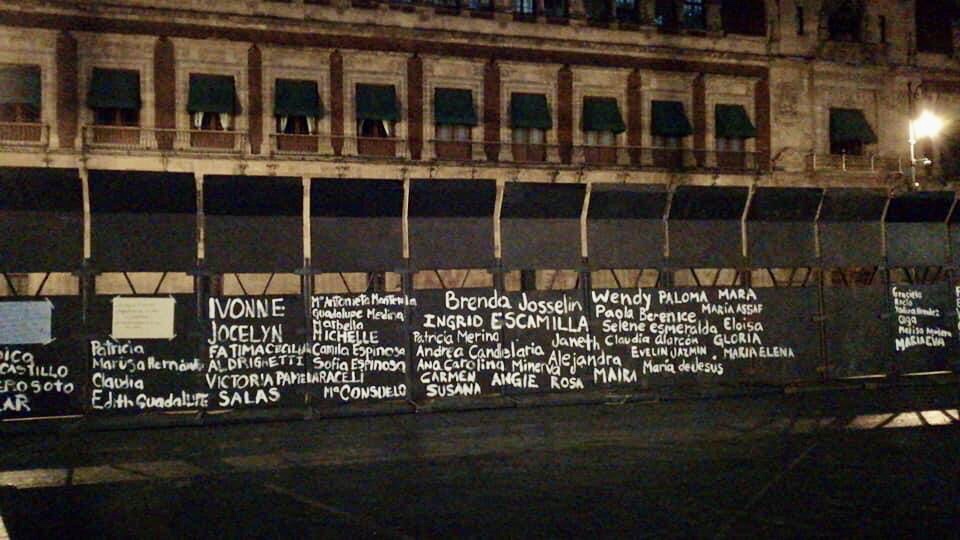 CASTILLO
SOTO
Patricia
Maruja Hernández
Claudia
Edith Guadalupe
IVONNE
JOCELYN
FATIMA CECILIA
ALDRIGHETTI
VICTORIA PAMELA
SALAS
Mª Antonieta
Guadalupe Medina
Norbella
MICHELLE
Camila Espinosa
Sofia Espinosa
ARACELI
Mª CONSUELO
Brenda Josselin
INGRID ESCAMILLA
Patricia Merino Janeth
Andrea Candelaria
Ana Carolina Minerva Alejandra
CARMEN ANGIE ROSA
SUSANA
Wendy PALOMA MARA
Paola Berenice MARIA ASSAF
Selene esmeralda Eloisa
Claudia alarcón GLORIA
EVELIN JAZMIN MARIA ELENA
MAIRA Maria de Jesus
Graciela
Rocío
Olga
MARIA EVA